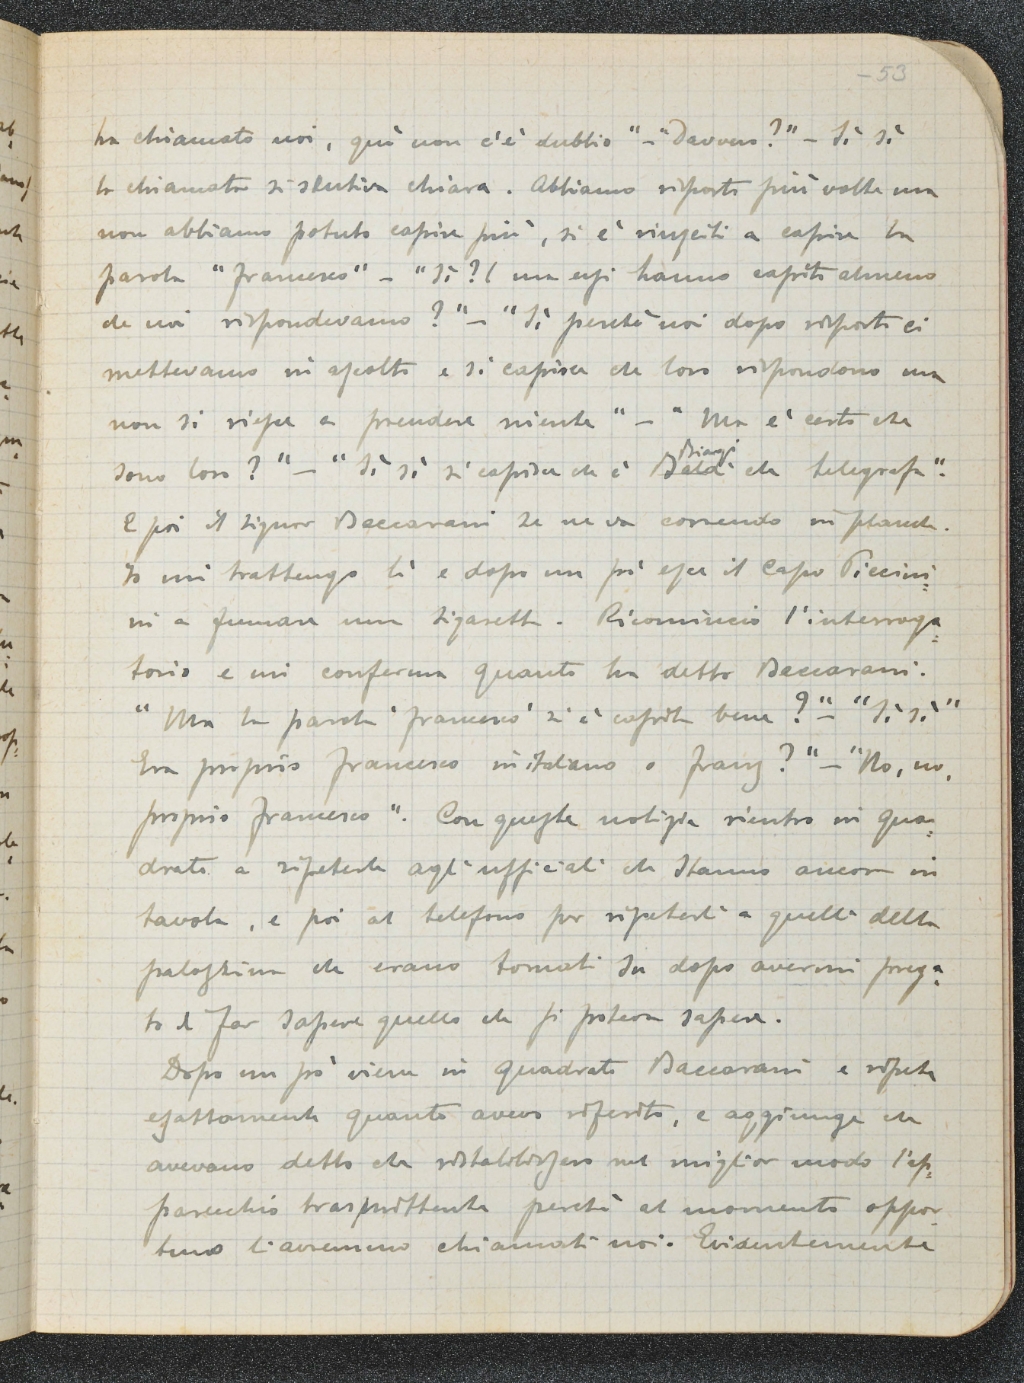 -53
ha chiamato noi, quì non c'è dubbio" - "Davvero?" - Sì sì
la chiamata si sentiva chiara. Abbiamo risposto più volte ma
non abbiamo potuto capire più, si è riusciti a capire la
parola "Francesco" - "Sì?! ma essi hanno capito almeno
che noi rispondevamo?" - "Sì perchè noi dopo risposto ci
mettevamo in ascolto e si capisce che loro rispondono ma
non si riesce a prendere niente" - "Ma è certo che
sono loro?" - "Sì sì si capisce che è Biagi che telegrafa".
E poi il signor Baccarani se ne va correndo in plancia.
Io mi trattengo lì e dopo un pò esce il Capo Piccini=
ni a fumare una sigaretta. Ricomincio l'interroga=
torio e mi conferma quanto ha detto Baccarani.
"Ma la parola 'Francesco' si è capita bene?" - "Sì sì"
Era proprio Francesco in italiano o Franz?" - "No, no,
proprio Francesco". Con queste notizie rientro in qua=
drato a ripeterle agli ufficiali che stanno ancora in
tavola, e poi al telefono per ripeterli a quelli della
palazzina che erano tornati su dopo avermi prega=
to di far sapere quello che si poteva sapere.
Dopo un pò viene in quadrato Baccarani e ripete
esattamente quanto avevo riferito, e aggiunge che
avevano detto che ristabilissero nel miglior modo l'ap=
parecchio trasmittente perchè al momento oppor-
tuno li avremmo chiamati noi. Evidentemente